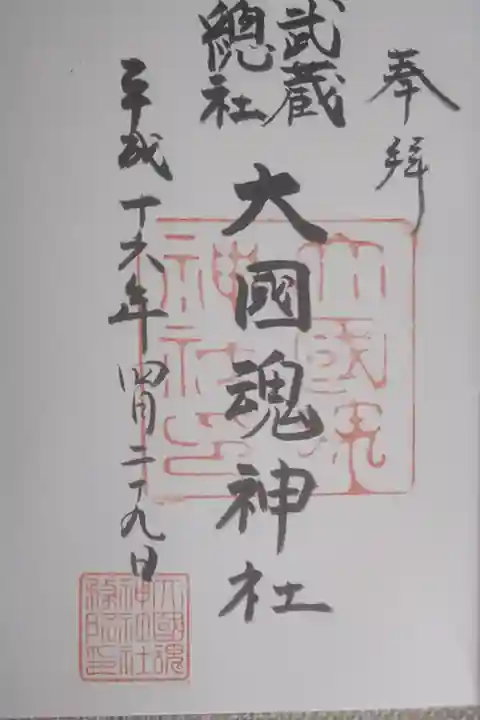 奉拝
武蔵
總社
大國魂神社
平成十六年四月二十九日
大國魂
神社印
大國魂
神社社